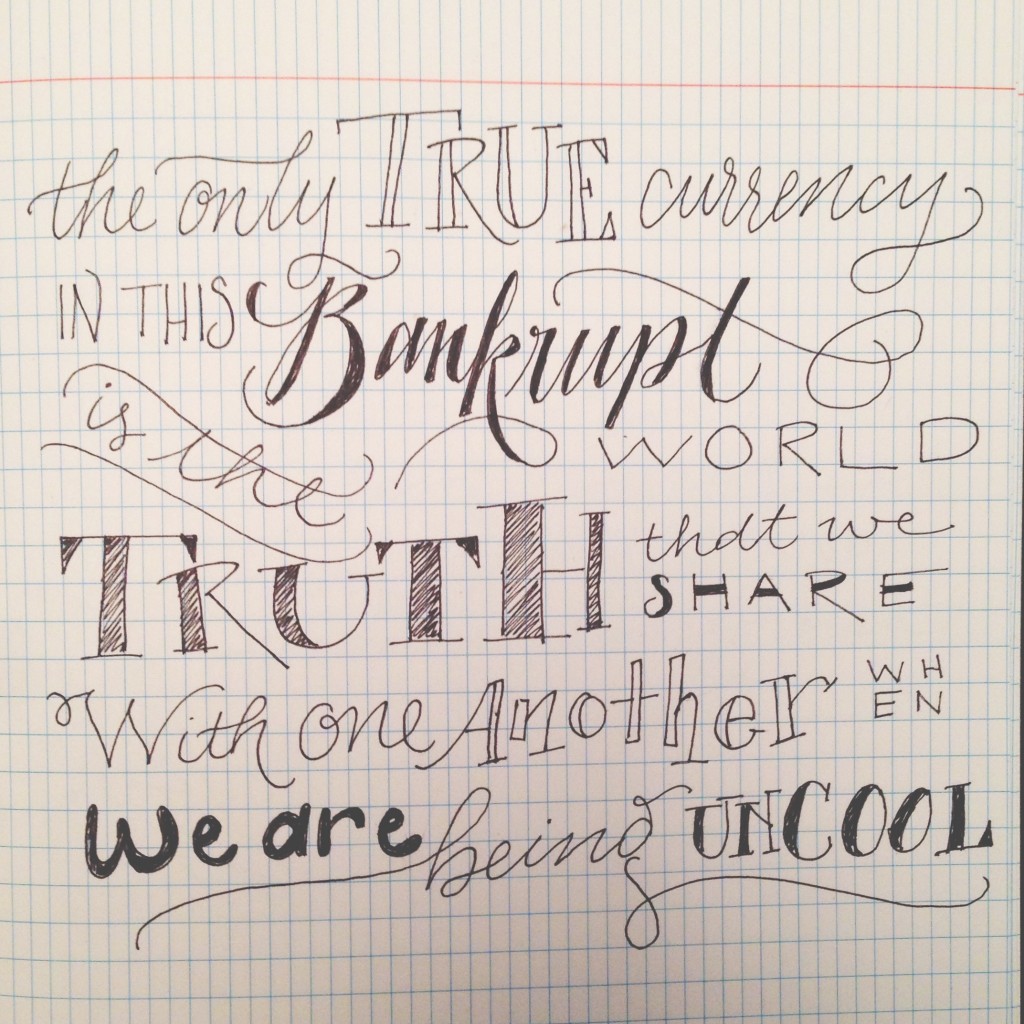 the only TRUE currency
IN THIS Bankrupt
is the WORLD
TRUTH that we
SHARE
With one Another WH
EN
We are being UNCOOL